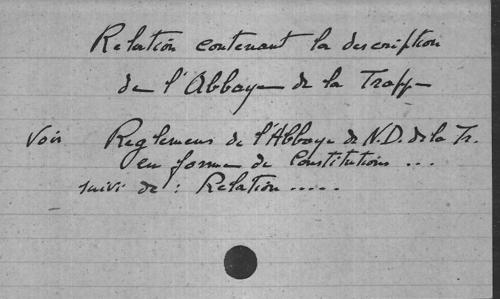 Relation contenant la description
de l'Abbaye de la Trappe
Voir Reglemens de l'Abbaye de N.D. de la Tr.
en forme de Constitutions ...
suivi de : Relation .....